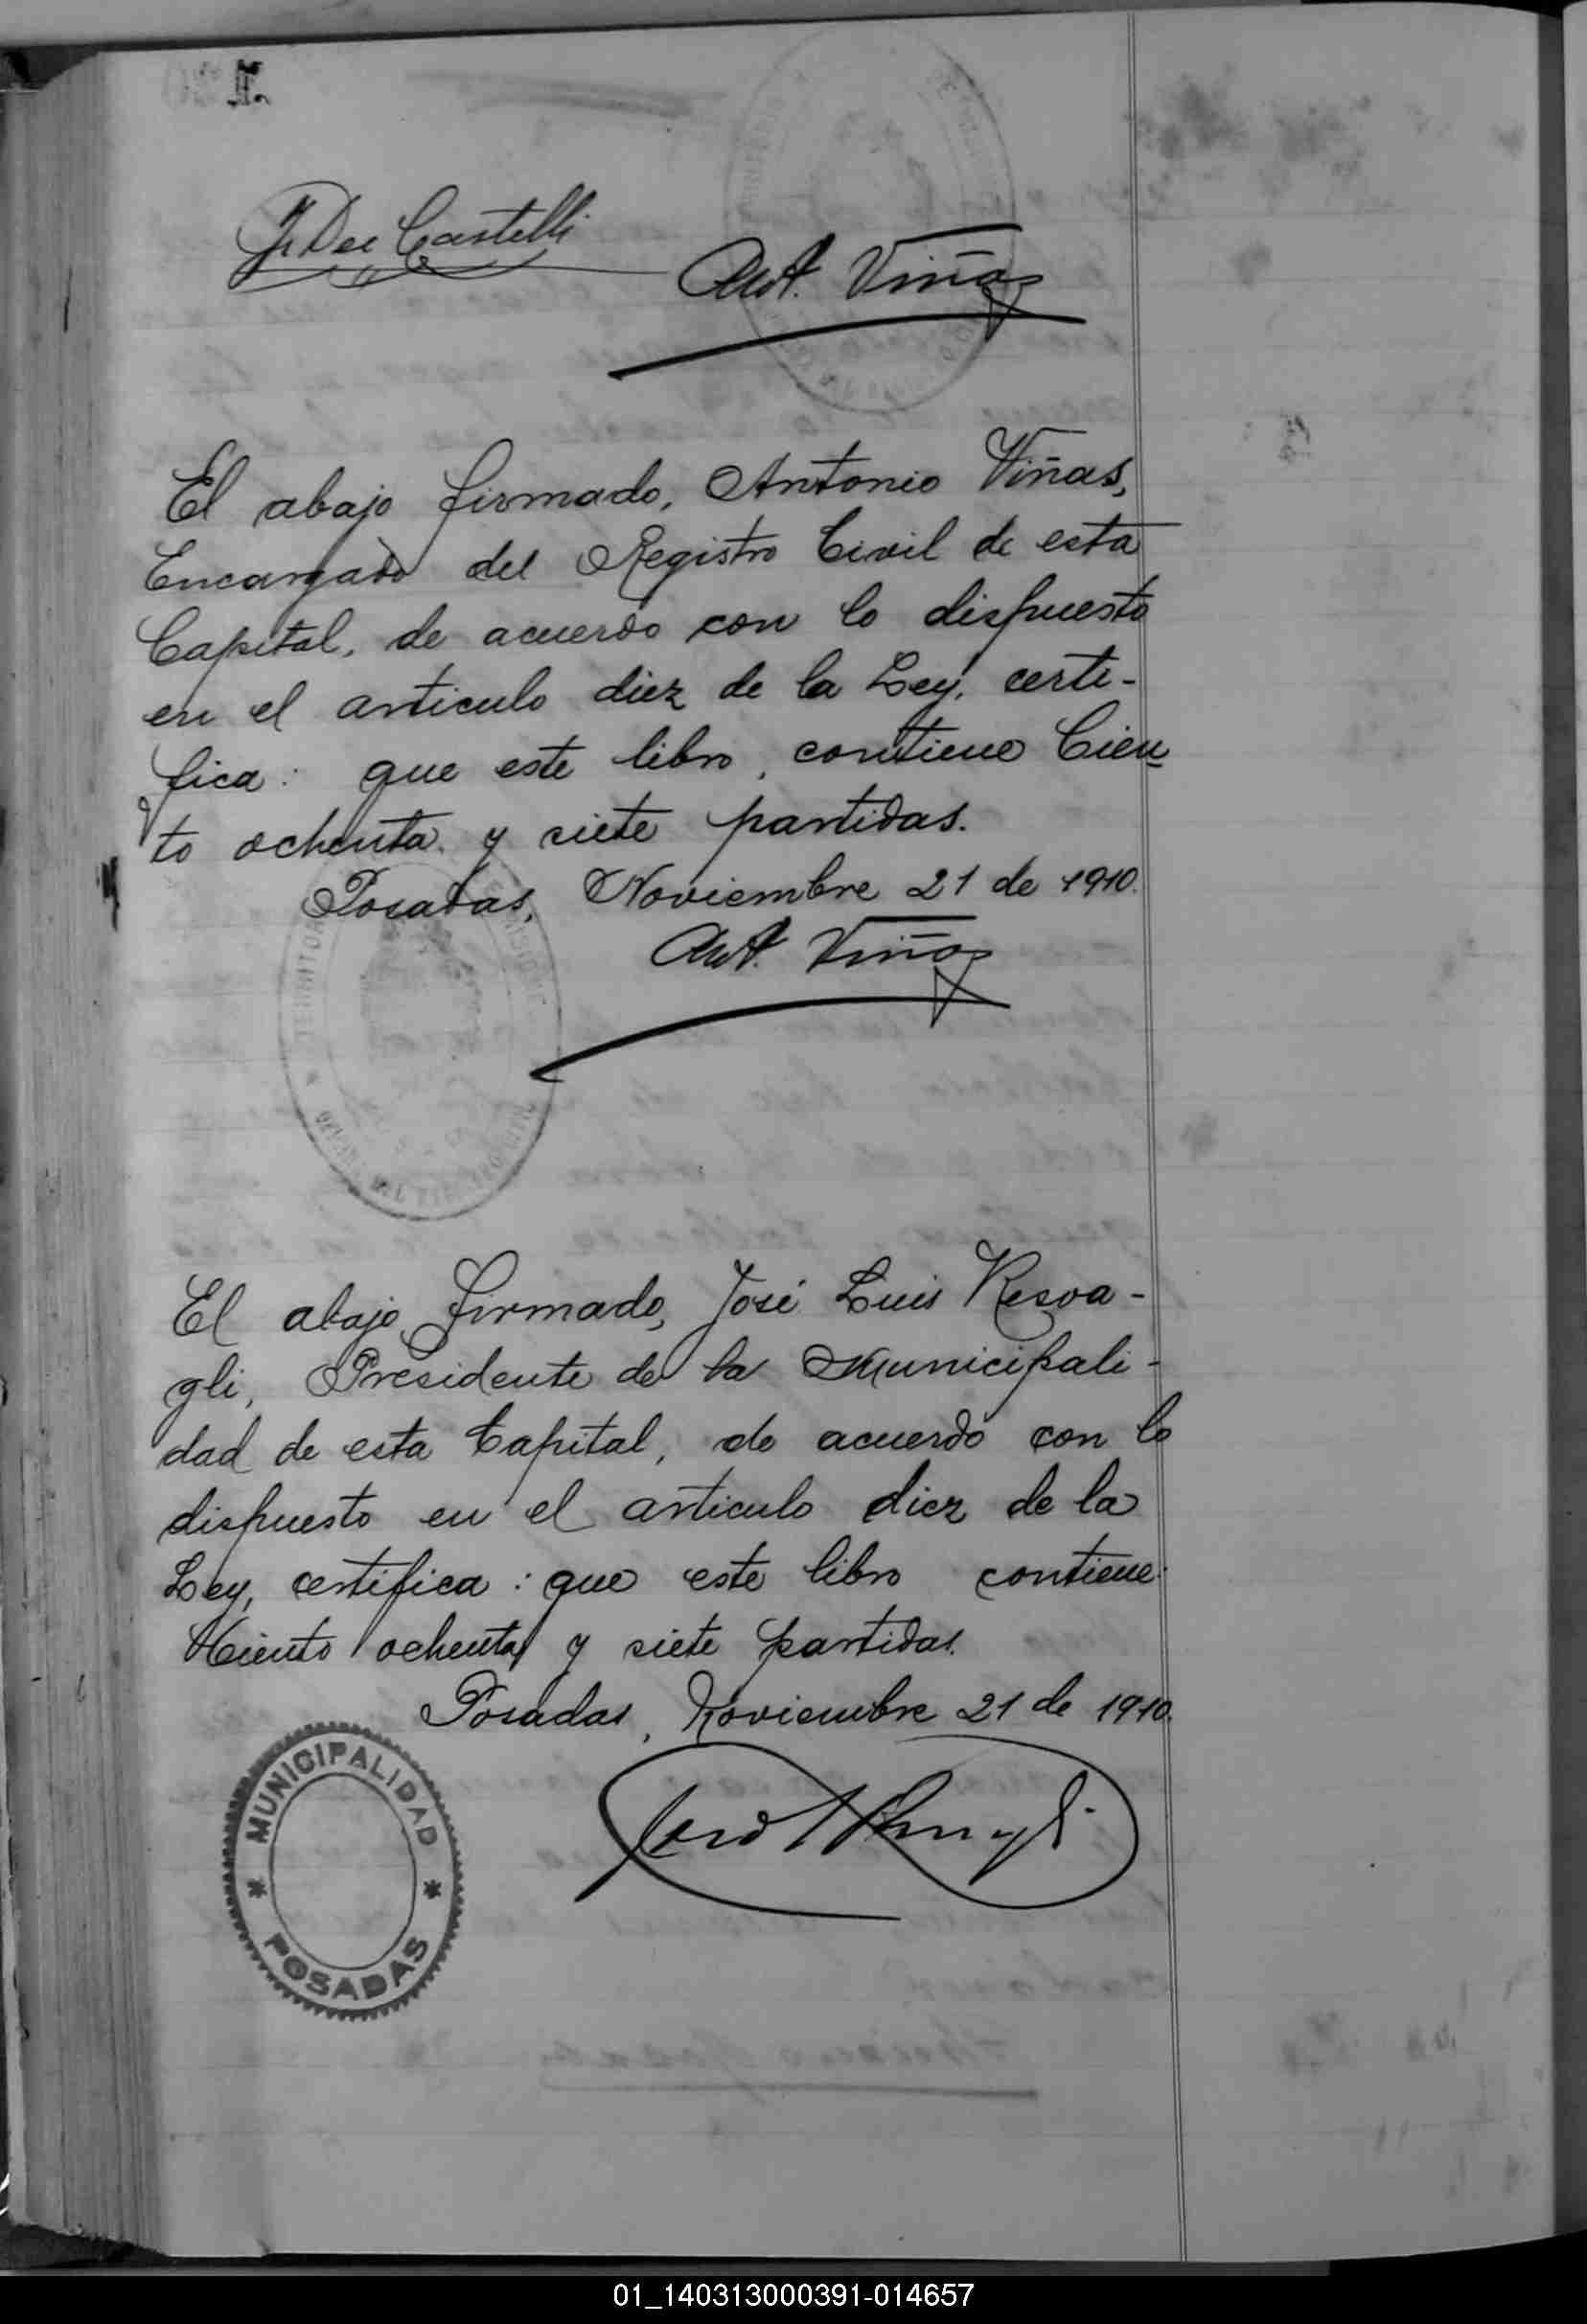 Castelli
Ant. Viñas
El abajo firmado, Antonio Viñas,
Encargado del Registro Civil de esta
Capital, de acuerdo con lo dispuesto
en el articulo diez de la Ley, certi-
fica: que este libro, contiene Cien
to ochenta y siete partidas.
Posadas, Noviembre 21 de 1910.
Ant. Viñas
TERRITORIO
El abajo firmado, José Luis Resoa-
gli, Presidente de la Municipali-
dad de esta Capital, de acuerdo con lo
dispuesto en el articulo diez de la
Ley, certifica: que este libro contiene
Ciento ochenta y siete partidas.
Posadas, Noviembre 21 de 1910.
MUNICIPALIDAD
POSADAS
01_140313000391-014657